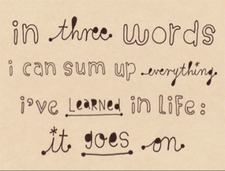 in three words
i can sum up everything
i've learned in life:
it goes on